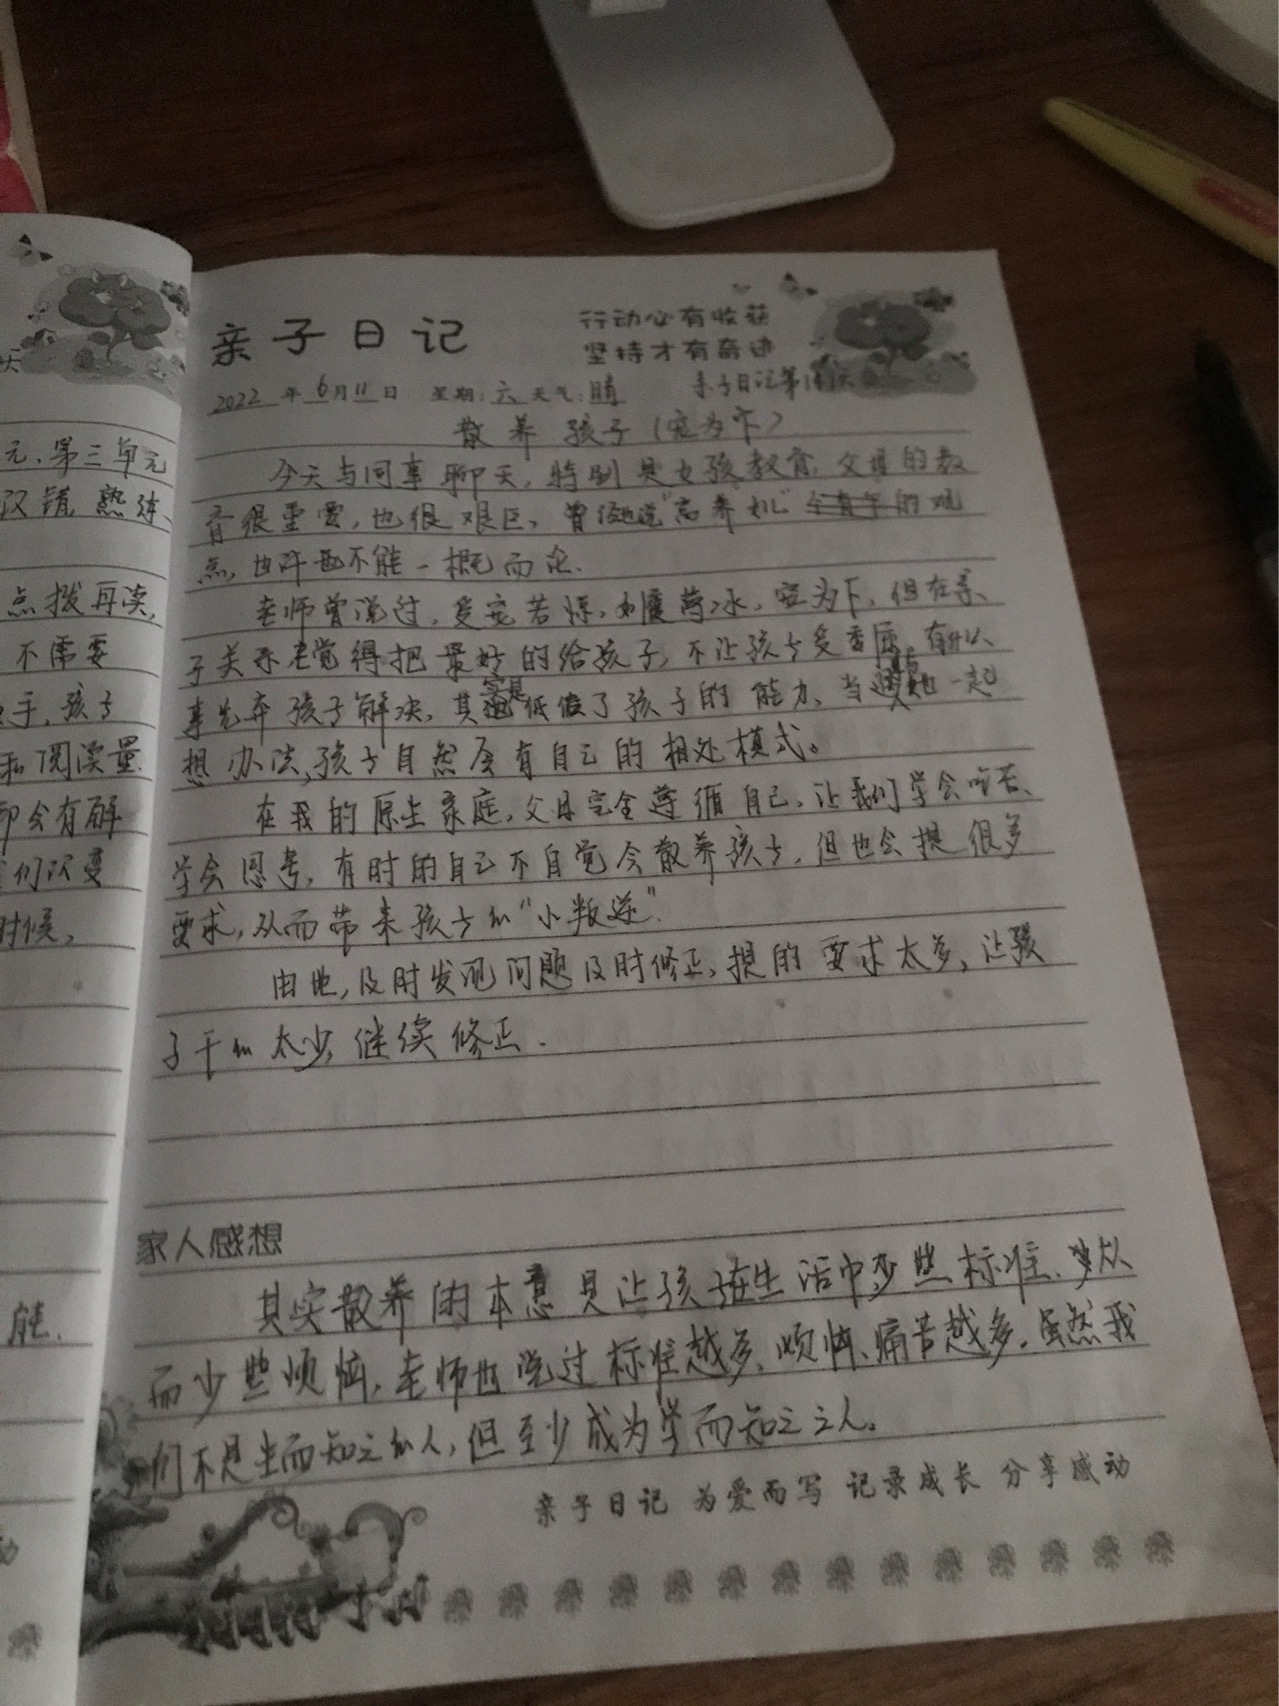 天
元、第三单元
汉错,熟练、
点拨再读,
不需要
手,孩子
和阅读量.
即会有解
们汉变
时候,
能.
亲子日记
行动必有收获
坚持才有奇迹
2022年6月11日 星期:六 天气:晴 亲子日记第 天
散养孩子(宠为下)
今天与同事聊天,特别是女孩教育,父母的教
育很重要,也很艰巨,曾 说"高养女儿" 的观
点,也许也不能一概而论.
老师曾说过,受宠若惊,如履薄冰,宠为下,但在亲、
子关系老觉得把最好的给孩子,不让孩子受委屈,有什么
事先弃孩子解决,其实是低估了孩子的能力、当 一起
想办法,孩子自然会有自己的相处模式。
在我的原生家庭,父母完全遵循自己,让我们学会 、
学会思考,有时的自己不自觉会散养孩子,但也会提很多
要求,从而带来孩子的"小叛逆".
由此,及时发现问题及时修正,提的要求太多,让孩
子干的太少,继续修正.
家人感想
其实散养的本意是让孩子在生活中少些标准、 从
而少些烦恼,老师也说过标准越多,烦恼、痛苦越多,虽然我
们不是生而知之的人,但至少成为学而知之之人。
亲子日记 为爱而写 记录成长 分享感动